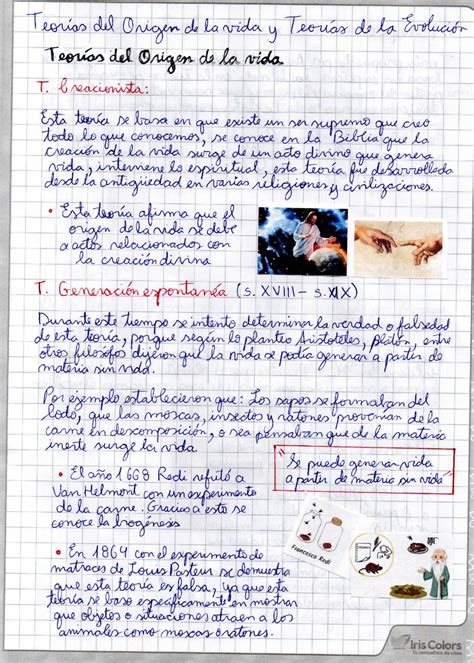 Teorías del Origen de la vida y Teorías de la Evolución
Teorías del Origen de la vida
T. Creacionista:
Esta teoría se basa en que existe un ser supremo que creó
todo lo que conocemos, se conoce en la Biblia que la
creación de la vida surge de un acto divino que genera
vida, interviene lo espiritual, esta teoría fue desarrollada
desde la antigüedad en varias religiones y civilizaciones.
• Esta teoría afirma que el
origen de la vida se debe
a actos relacionados con
la creación divina
T. Generación espontanéa (s. XVIII - s. XIX)
Durante este tiempo se intento determinar la verdad o falsedad
de esta teoría, porque según lo planteo Aristóteles, Platón, entre
otros filósofos dijeron qul la vida se podía generar a partir de
materia sin vida.
Por ejemplo establecieron que: Los sapos se formaban del
lodo, que las moscas, insectos y ratones provenían de la
carne en descomposición, o sea pensaban que de la materia
inerte surge la vida
"Se puede generar vida
a partir de materia sin vida"
• El año 1668 Redi refutó a
Van Helmont con un experimento
de la carne. Gracias a esto se
conoce la biogénesis
Francesco Redi
• En 1864 con el experimento de
matraces de Louis Pasteur se demuestra
que esta teoría es falsa, ya que esta
teoría se baso específicamente en mostrar
que objetos o situaciones atraen a los
animales como moscas o ratones.
Iris Colors
Tu compañero de clase